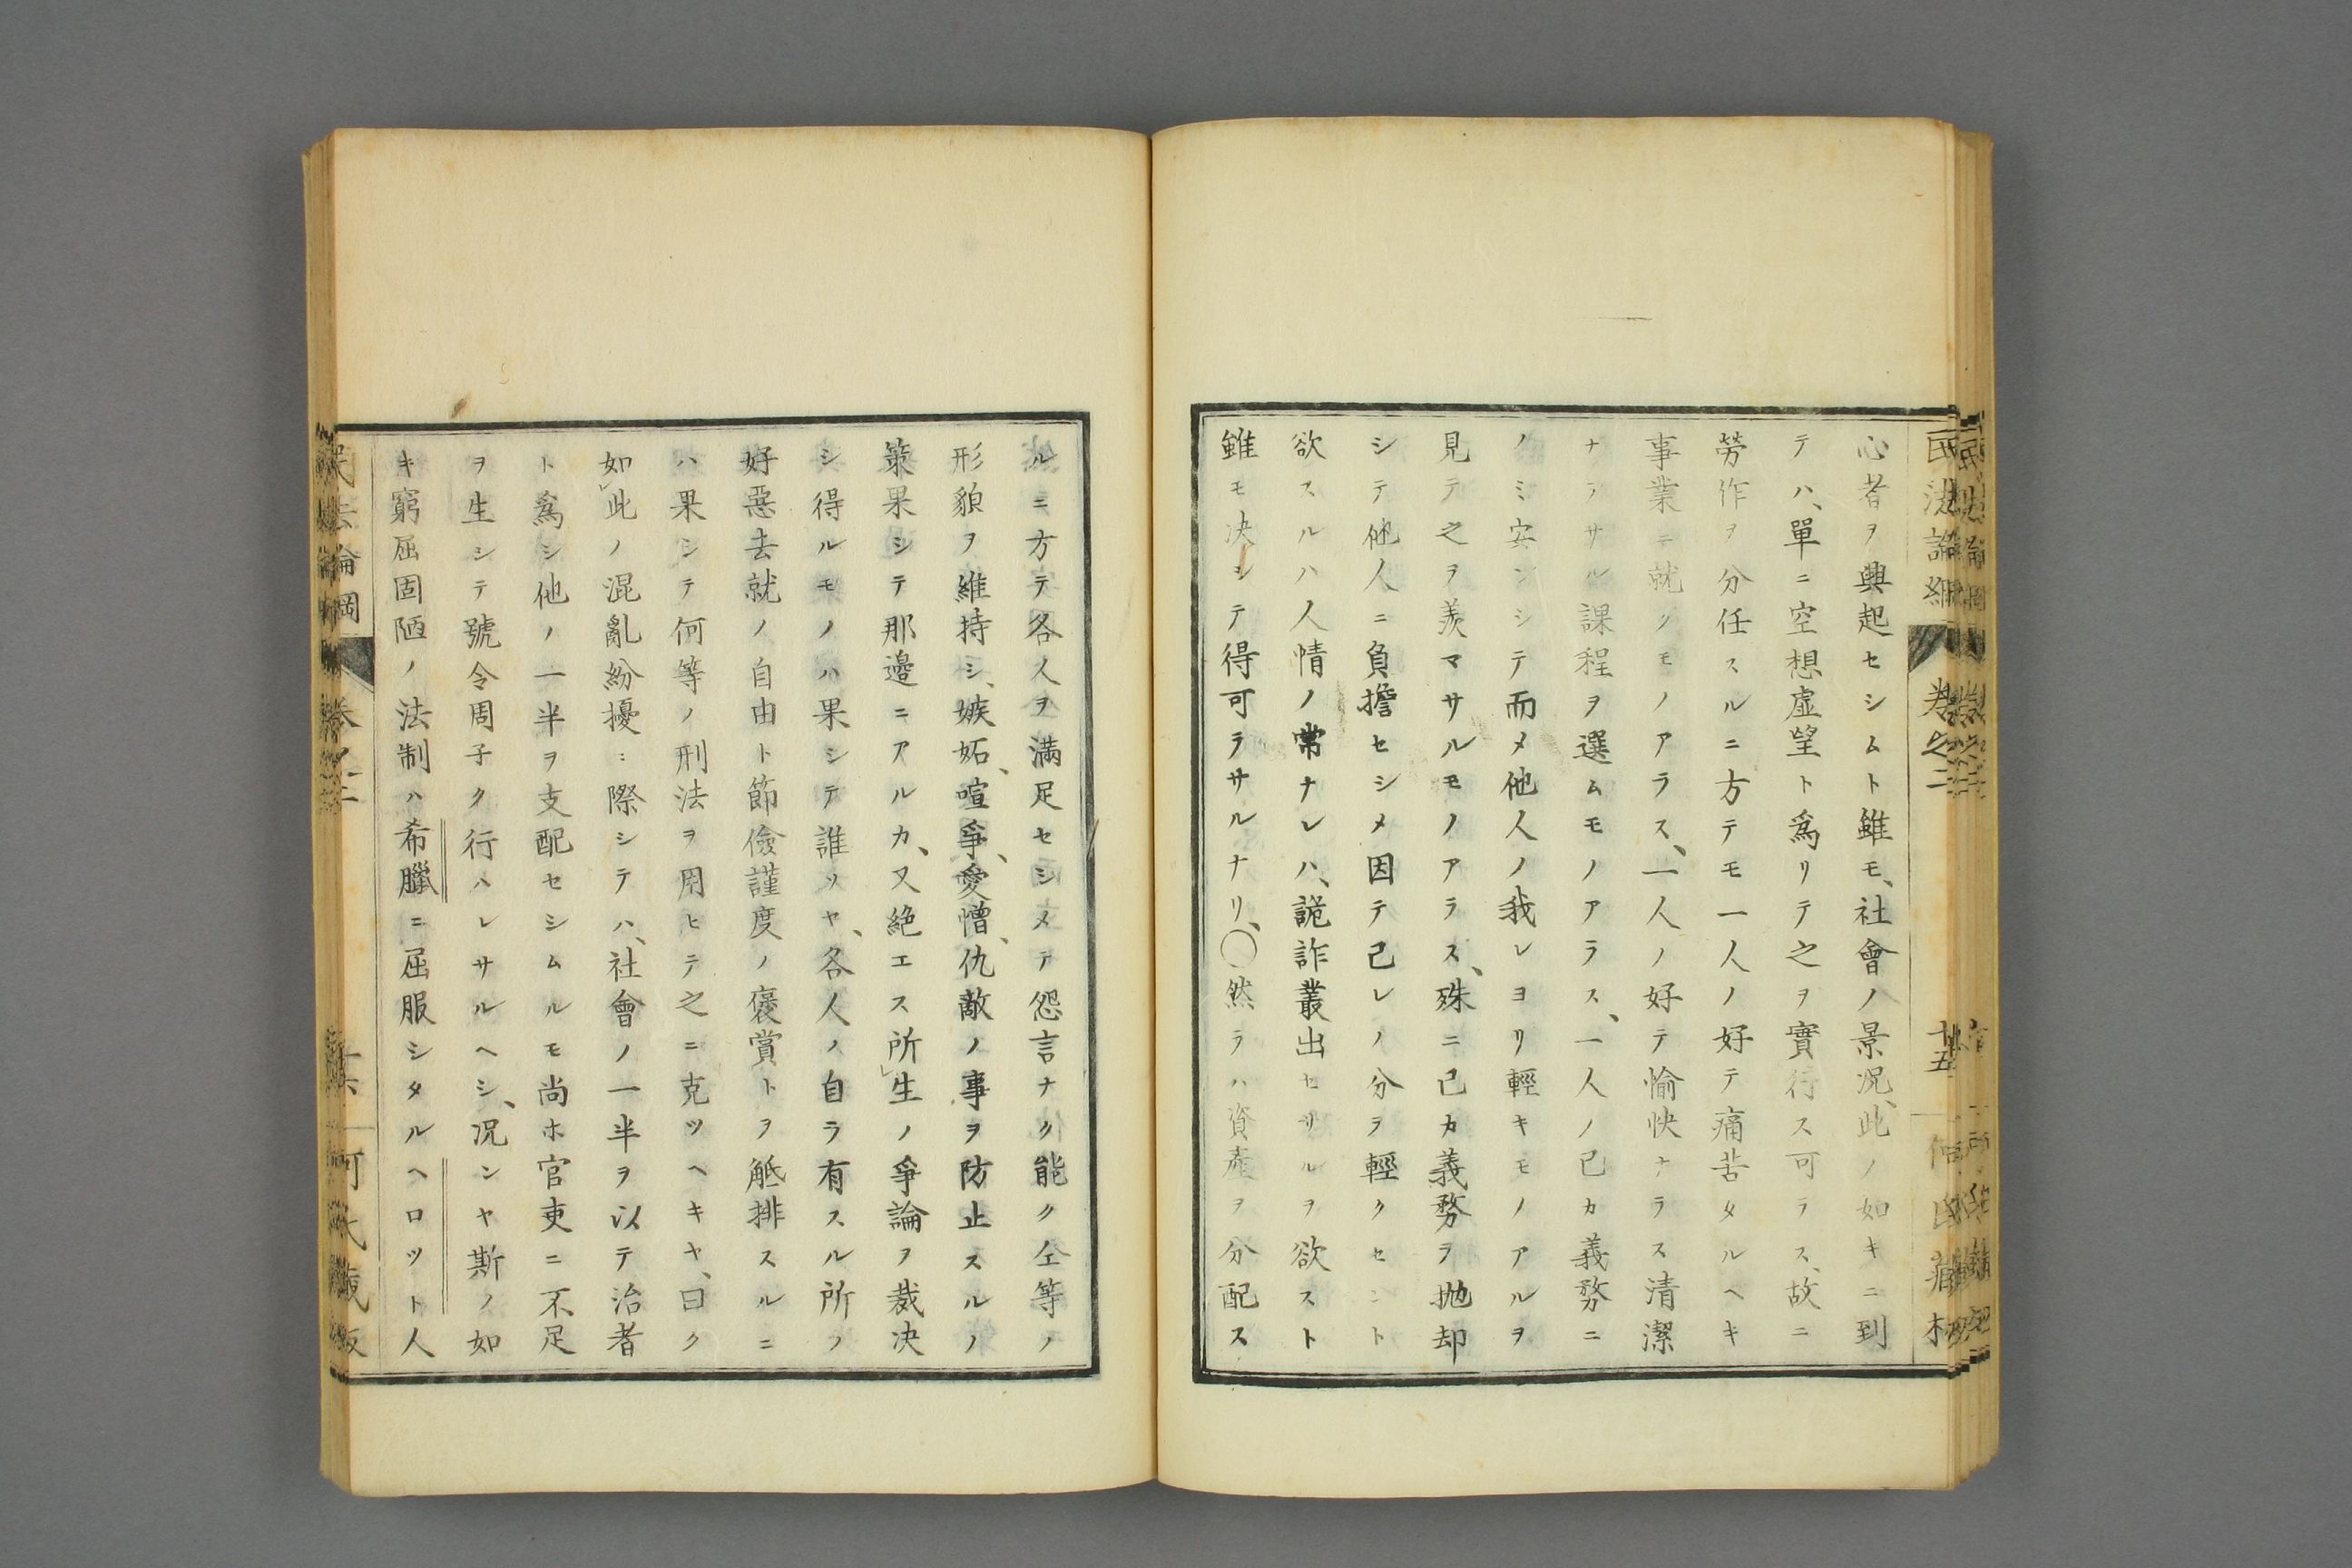 心者ヲ興起セシムト雖モ、社會ノ景况、此ノ如キニ到
テハ、單ニ空想虚望ト爲リテ之ヲ實行ス可ラス、故ニ
勞作ヲ分任スルニ方テモ一人ノ好テ痛苦タルヘキ
事業ニ就クモノアラス、一人ノ好テ愉快ナラス清潔
ナラサル課程ヲ選ムモノアラス、一人ノ己カ義務ニ
ノミ安ンシテ而メ他人ノ我レヨリ輕キモノアルヲ
見テ之ヲ羨マサルモノアラス、殊ニ己カ義務ヲ抛却
シテ他人ニ負擔セシメ因テ己レノ分ヲ輕クセント
欲スルハ人情ノ常ナレハ、詭詐叢出セサルヲ欲スト
雖モ决シテ得可ラサルナリ、〇然ラハ資産ヲ分配ス
民法論綱 卷之二 十五
ルニ方テ各人ヲ滿足セシメテ怨言ナク能ク仝等ノ
形貌ヲ維持シ、嫉妬、喧爭、愛憎、仇敵ノ事ヲ防止スルノ
策果シテ那邉ニアルカ、又絶エス所生ノ爭論ヲ裁决
シ得ルモノハ果シテ誰ソヤ、各人ノ自ラ有スル所ノ
好惡去就ノ自由ト節儉謹度ノ褒賞トヲ觝排スルニ
ハ果シテ何等ノ刑法ヲ用ヒテ之ニ克ツヘキヤ、曰ク
如此ノ混亂紛擾ニ際シテハ、社會ノ一半ヲ以テ治者
ト爲シ他ノ一半ヲ支配セシムルモ尚ホ官吏ニ不足
ヲ生シテ號令周子ク行ハレサルヘシ、况ンヤ斯ノ如
キ窮屈固陋ノ法制ハ希臘ニ屈服シタルヘロット人
民法論綱 卷之二 十六 何氏藏版